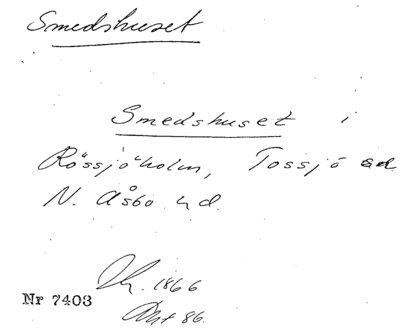 Smedshuset
Smedshuset i
Rössjöholm, Tossjö sd
N. Åsbo hd.
1866
Nr 7403
86.